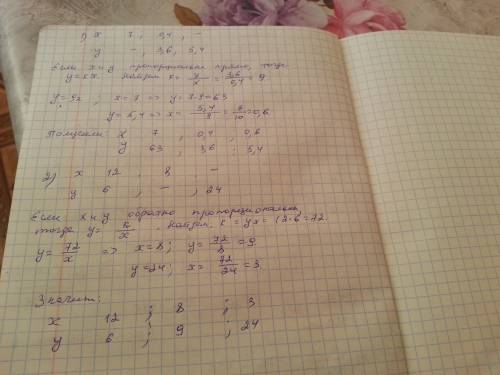 1) x 7, 0,4, –
y –, 3,6, 5,4
Если x и y пропорциональны прямо, тогда
y = kx. Найдем k = y/x = 3,6/0,4 = 9
y = 9x, x = 7 => y = 7·9 = 63
y = 5,4 => x = 5,4/9 = 6/10 = 0,6
Получили: x 7, 0,4, 0,6
y 63, 3,6, 5,4
2) x 12 8 –
y 6, –, 24
Если x и y обратно пропорциональны,
тогда y = k/x. Найдем k = yx = 12·6 = 72.
y = 72/x => x = 8; y = 72/8 = 9
y = 24, x = 72/24 = 3
Значит:
x 12; 8; 3
y 6; 9; 24